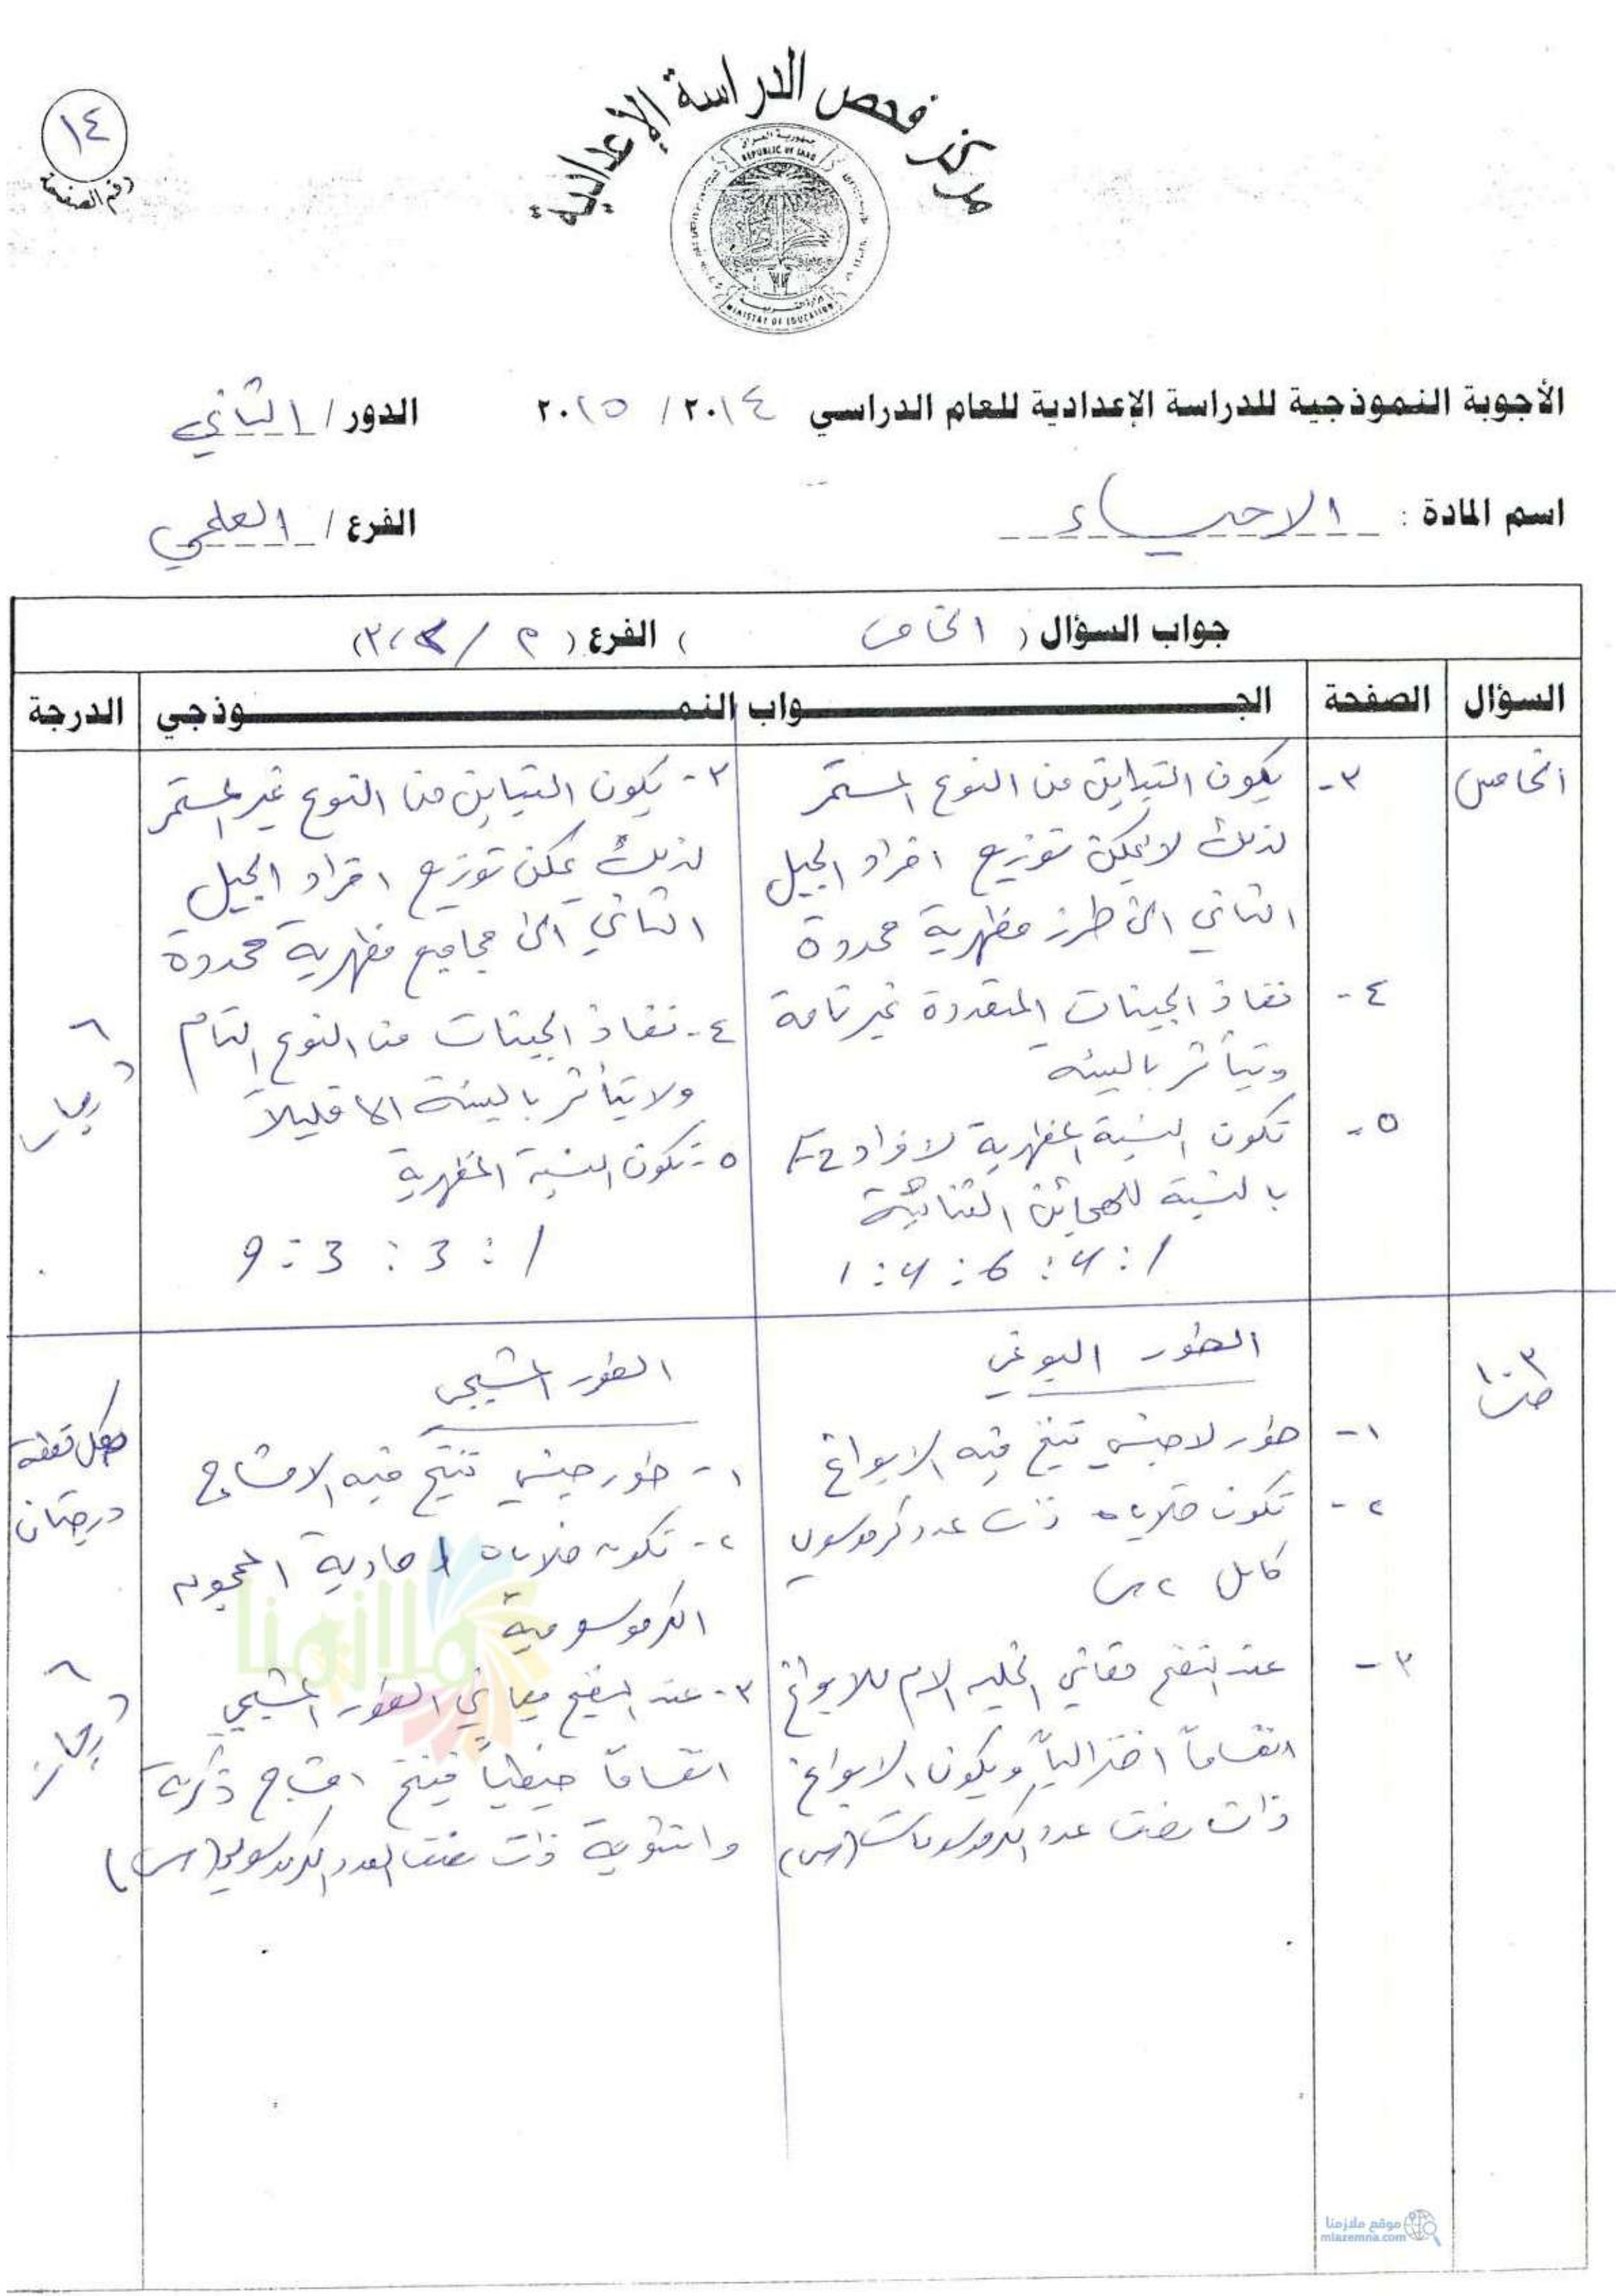 مركز فحص الدراسة الإعدادية
جمهورية العراق
REPUBLIC OF IRAQ
وزارة التربية
MINISTRY OF EDUCATION
١٤
رقم الصفحة
الأجوبة النموذجية للدراسة الإعدادية للعام الدراسي ٢٠١٤ / ٢٠١٥ الدور / الثاني
اسم المادة : الاحياء الفرع / العلمي
جواب السؤال ( الخامس ) الفرع (
السؤال الصفحة الجواب النموذجي الدرجة
الخامس
٣- يكون التباين من النوع المستمر
لذلك لا يمكن توزيع افراد الجيل
الثاني الى طرز مظهرية محددة
٤- نفاذ الجينات المتعددة غير تامة
وتتأثر بالبيئة
٥- تكون النسبة المظهرية لافراد F2
بالنسبة للهجائن الثنائية
1:4:6:4:1
٣- يكون التباين من النوع غير المستمر
لذلك يمكن توزيع افراد الجيل
الثاني الى مجاميع مظهرية محددة
٤- نفاذ الجينات من النوع التام
ولا يتأثر بالبيئة الا قليلاً
٥- تكون النسبة المظهرية
9:3:3:1
٦ درجات
الطور البوغي
١- طور لاجنسي تنتج فيه الابواغ
٢- تكون خلاياه ذات عدد كرموسومي
كامل ٢س
٣- عند النضج تعاني الخلية الام للابواغ
انقساماً اختزالياً ويكون الابواغ
ذات نصف عدد الكرموسومات (س)
الطور المشيجي
١- طور جنسي تنتج فيه الامشاج
٢- تكون خلاياه احادية المجموعة
الكرموسومية
٣- عند النضج يعاني الطور المشيجي
انقساماً خيطياً فينتج امشاج ذكرية
وانثوية ذات نصف العدد الكرموسومي (س)
لكل نقطة
درجتان
٦ درجات
ملازمنا
موقع ملازمنا
mlazemna.com